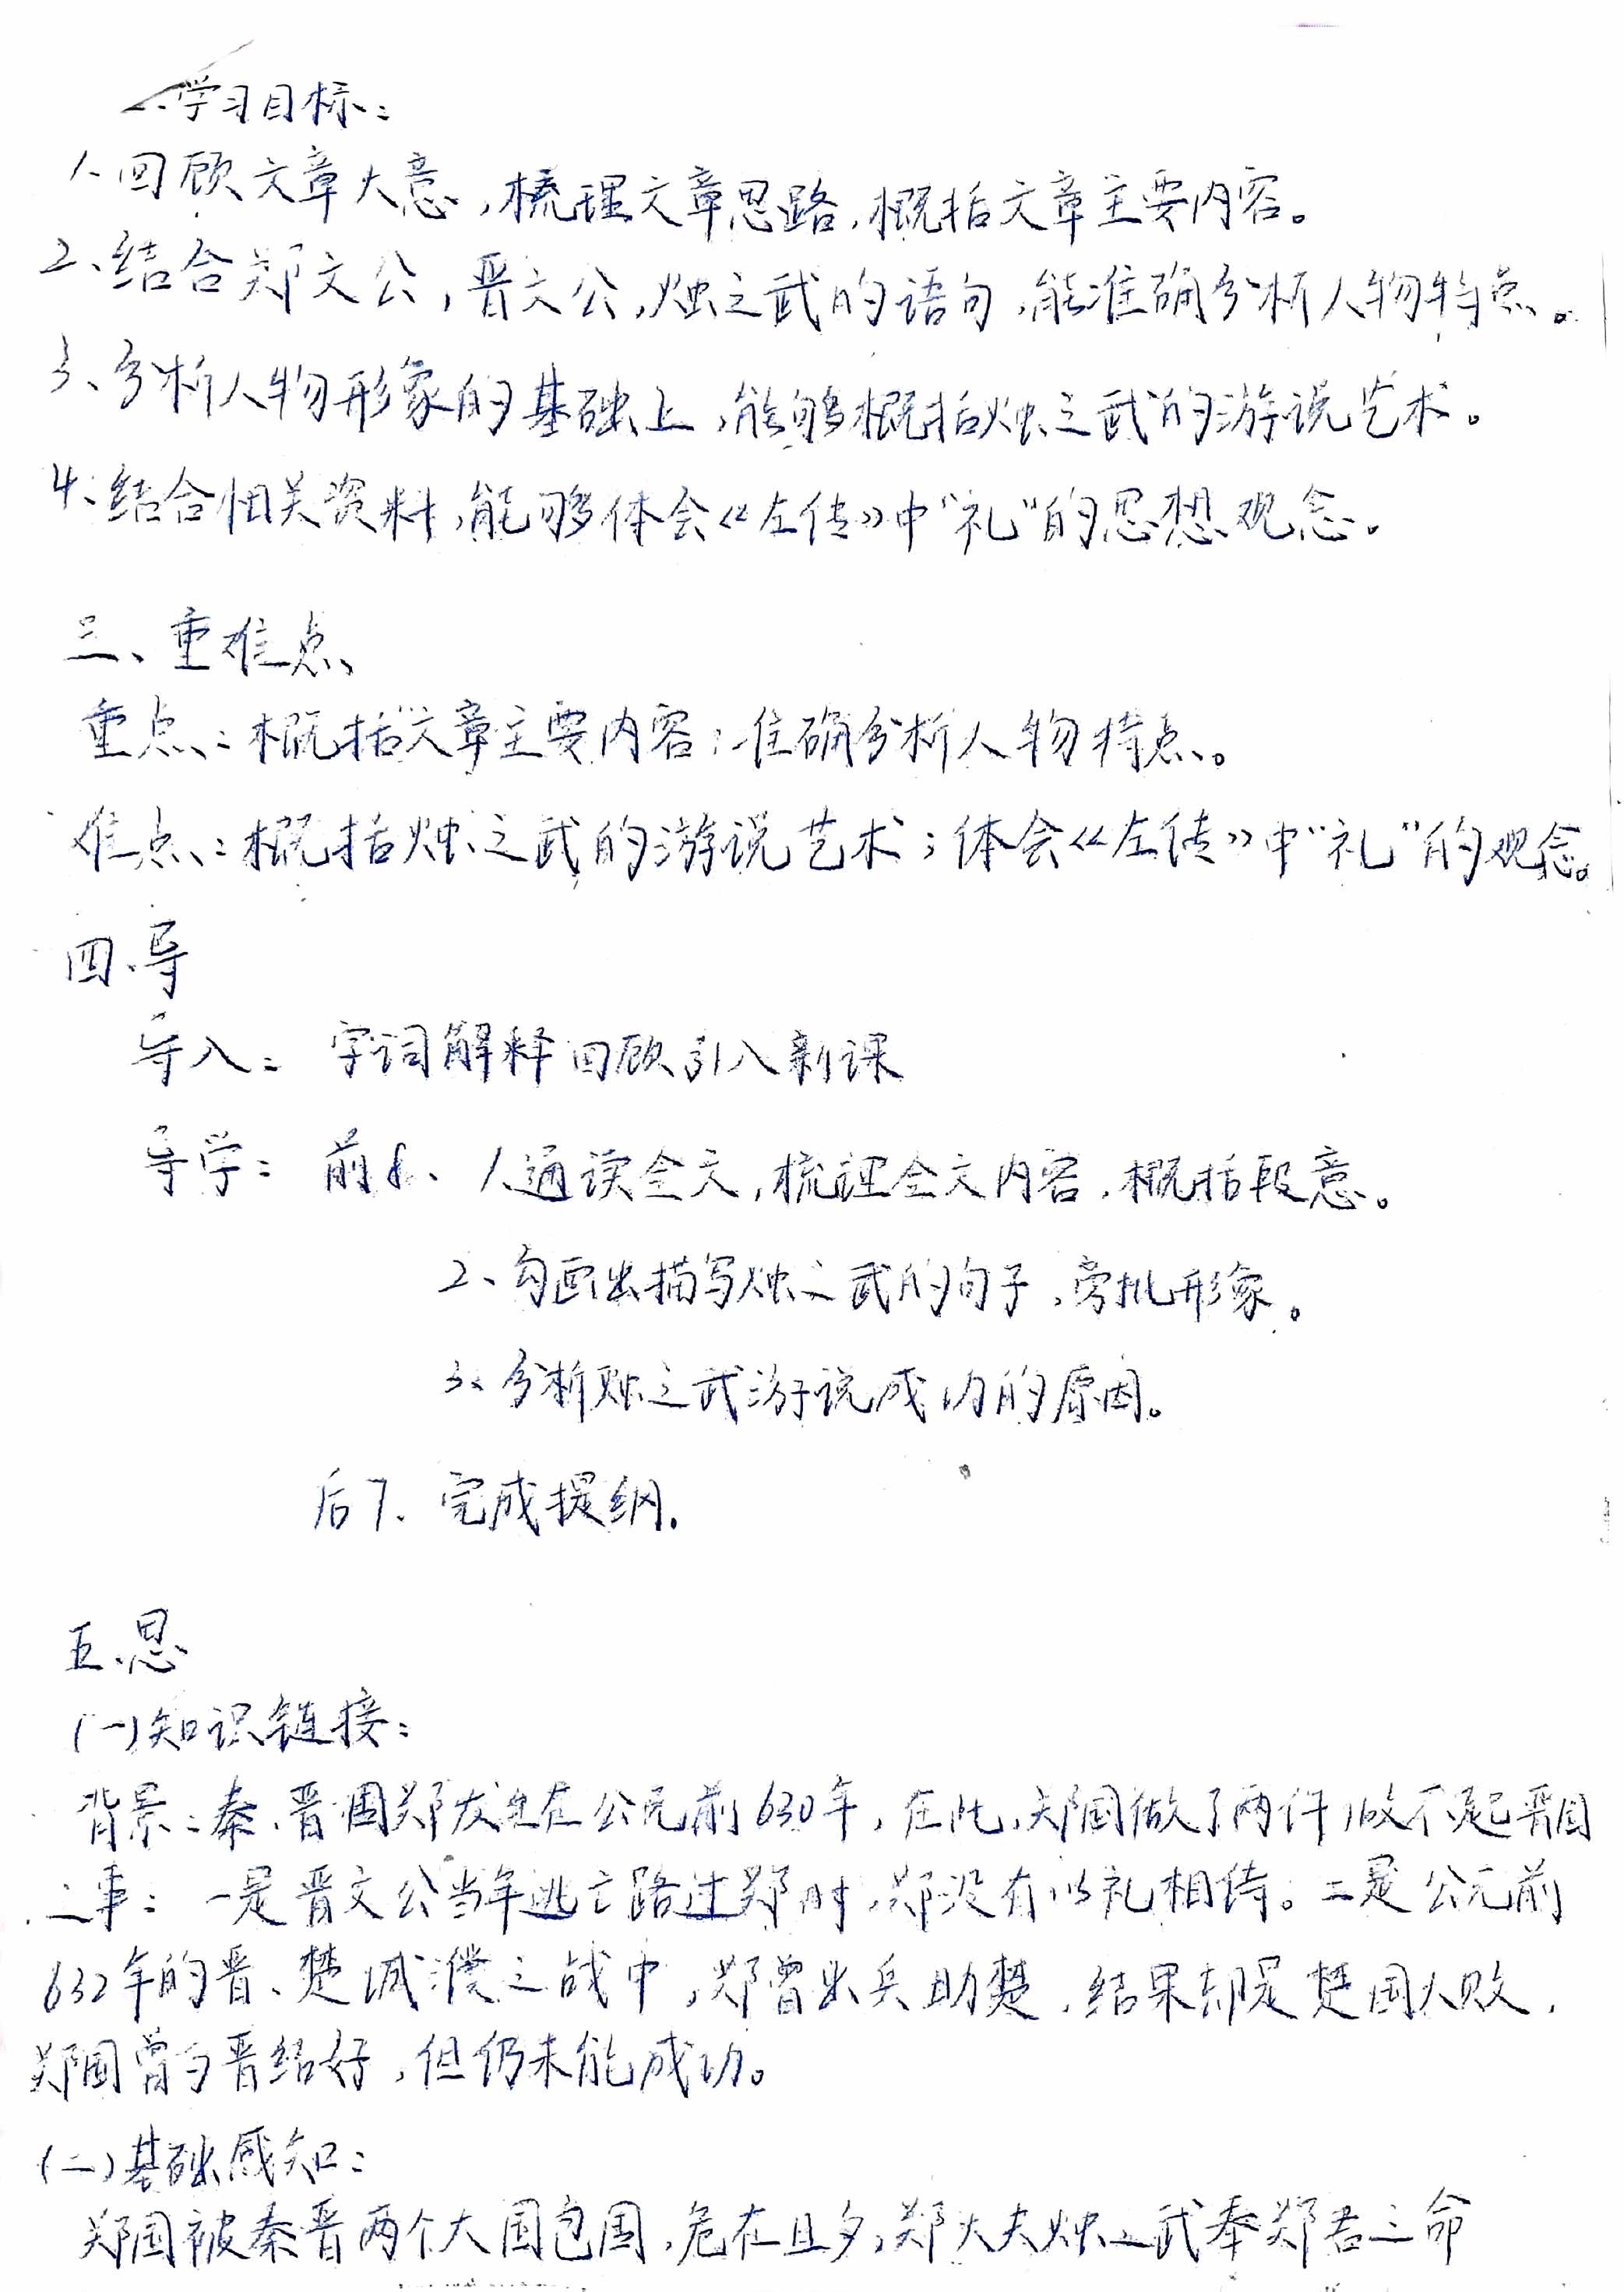 二、学习目标：
1、回顾文章大意，梳理文章思路，概括文章主要内容。
2、结合郑文公，晋文公，烛之武的语句，能准确分析人物特点。
3、分析人物形象的基础上，能够概括烛之武的游说艺术。
4、结合相关资料，能够体会《左传》中“礼”的思想观念。
三、重难点
重点：概括文章主要内容；准确分析人物特点。
难点：概括烛之武的游说艺术；体会《左传》中“礼”的观念。
四、导
导入：字词解释回顾引入新课
导学：前8、1通读全文，梳理全文内容，概括段意。
2、勾画出描写烛之武的句子，旁批形象。
3、分析烛之武游说成功的原因。
后7、完成提纲.
五、思
(一)知识链接：
背景：秦、晋围郑发生在公元前630年，在此，郑国做了两件对不起晋国
之事：一是晋文公当年逃亡路过郑时，郑没有以礼相待。二是公元前
632年的晋、楚城濮之战中，郑曾出兵助楚，结果却是楚国大败，
郑国曾与晋结好，但仍未能成功。
(二)基础感知：
郑国被秦晋两个大国包围，危在旦夕，郑大夫烛之武奉郑君之命